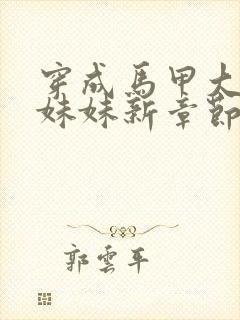 穿成馬甲大
妹妹新章節
郭雲平